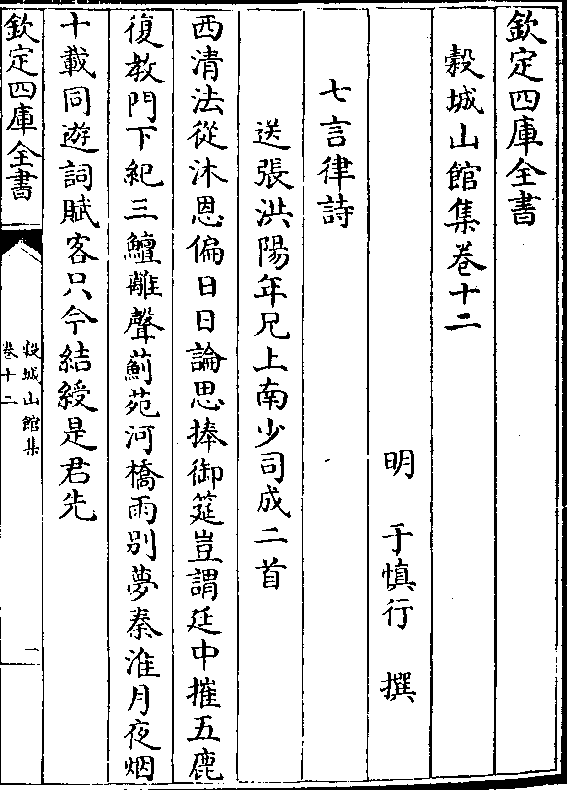 欽定四庫全書
穀城山館集卷十二
明 于慎行 撰
七言律詩
送張洪陽年兄上南少司成二首
西清法從沐恩偏日日論思捧御筵豈謂廷中摧五鹿
復教門下紀三鱣離聲薊苑河橋雨别夢秦淮月夜烟
十載同遊詞賦客只今結綬是君先
欽定四庫全書
穀城山館集
卷十二
一